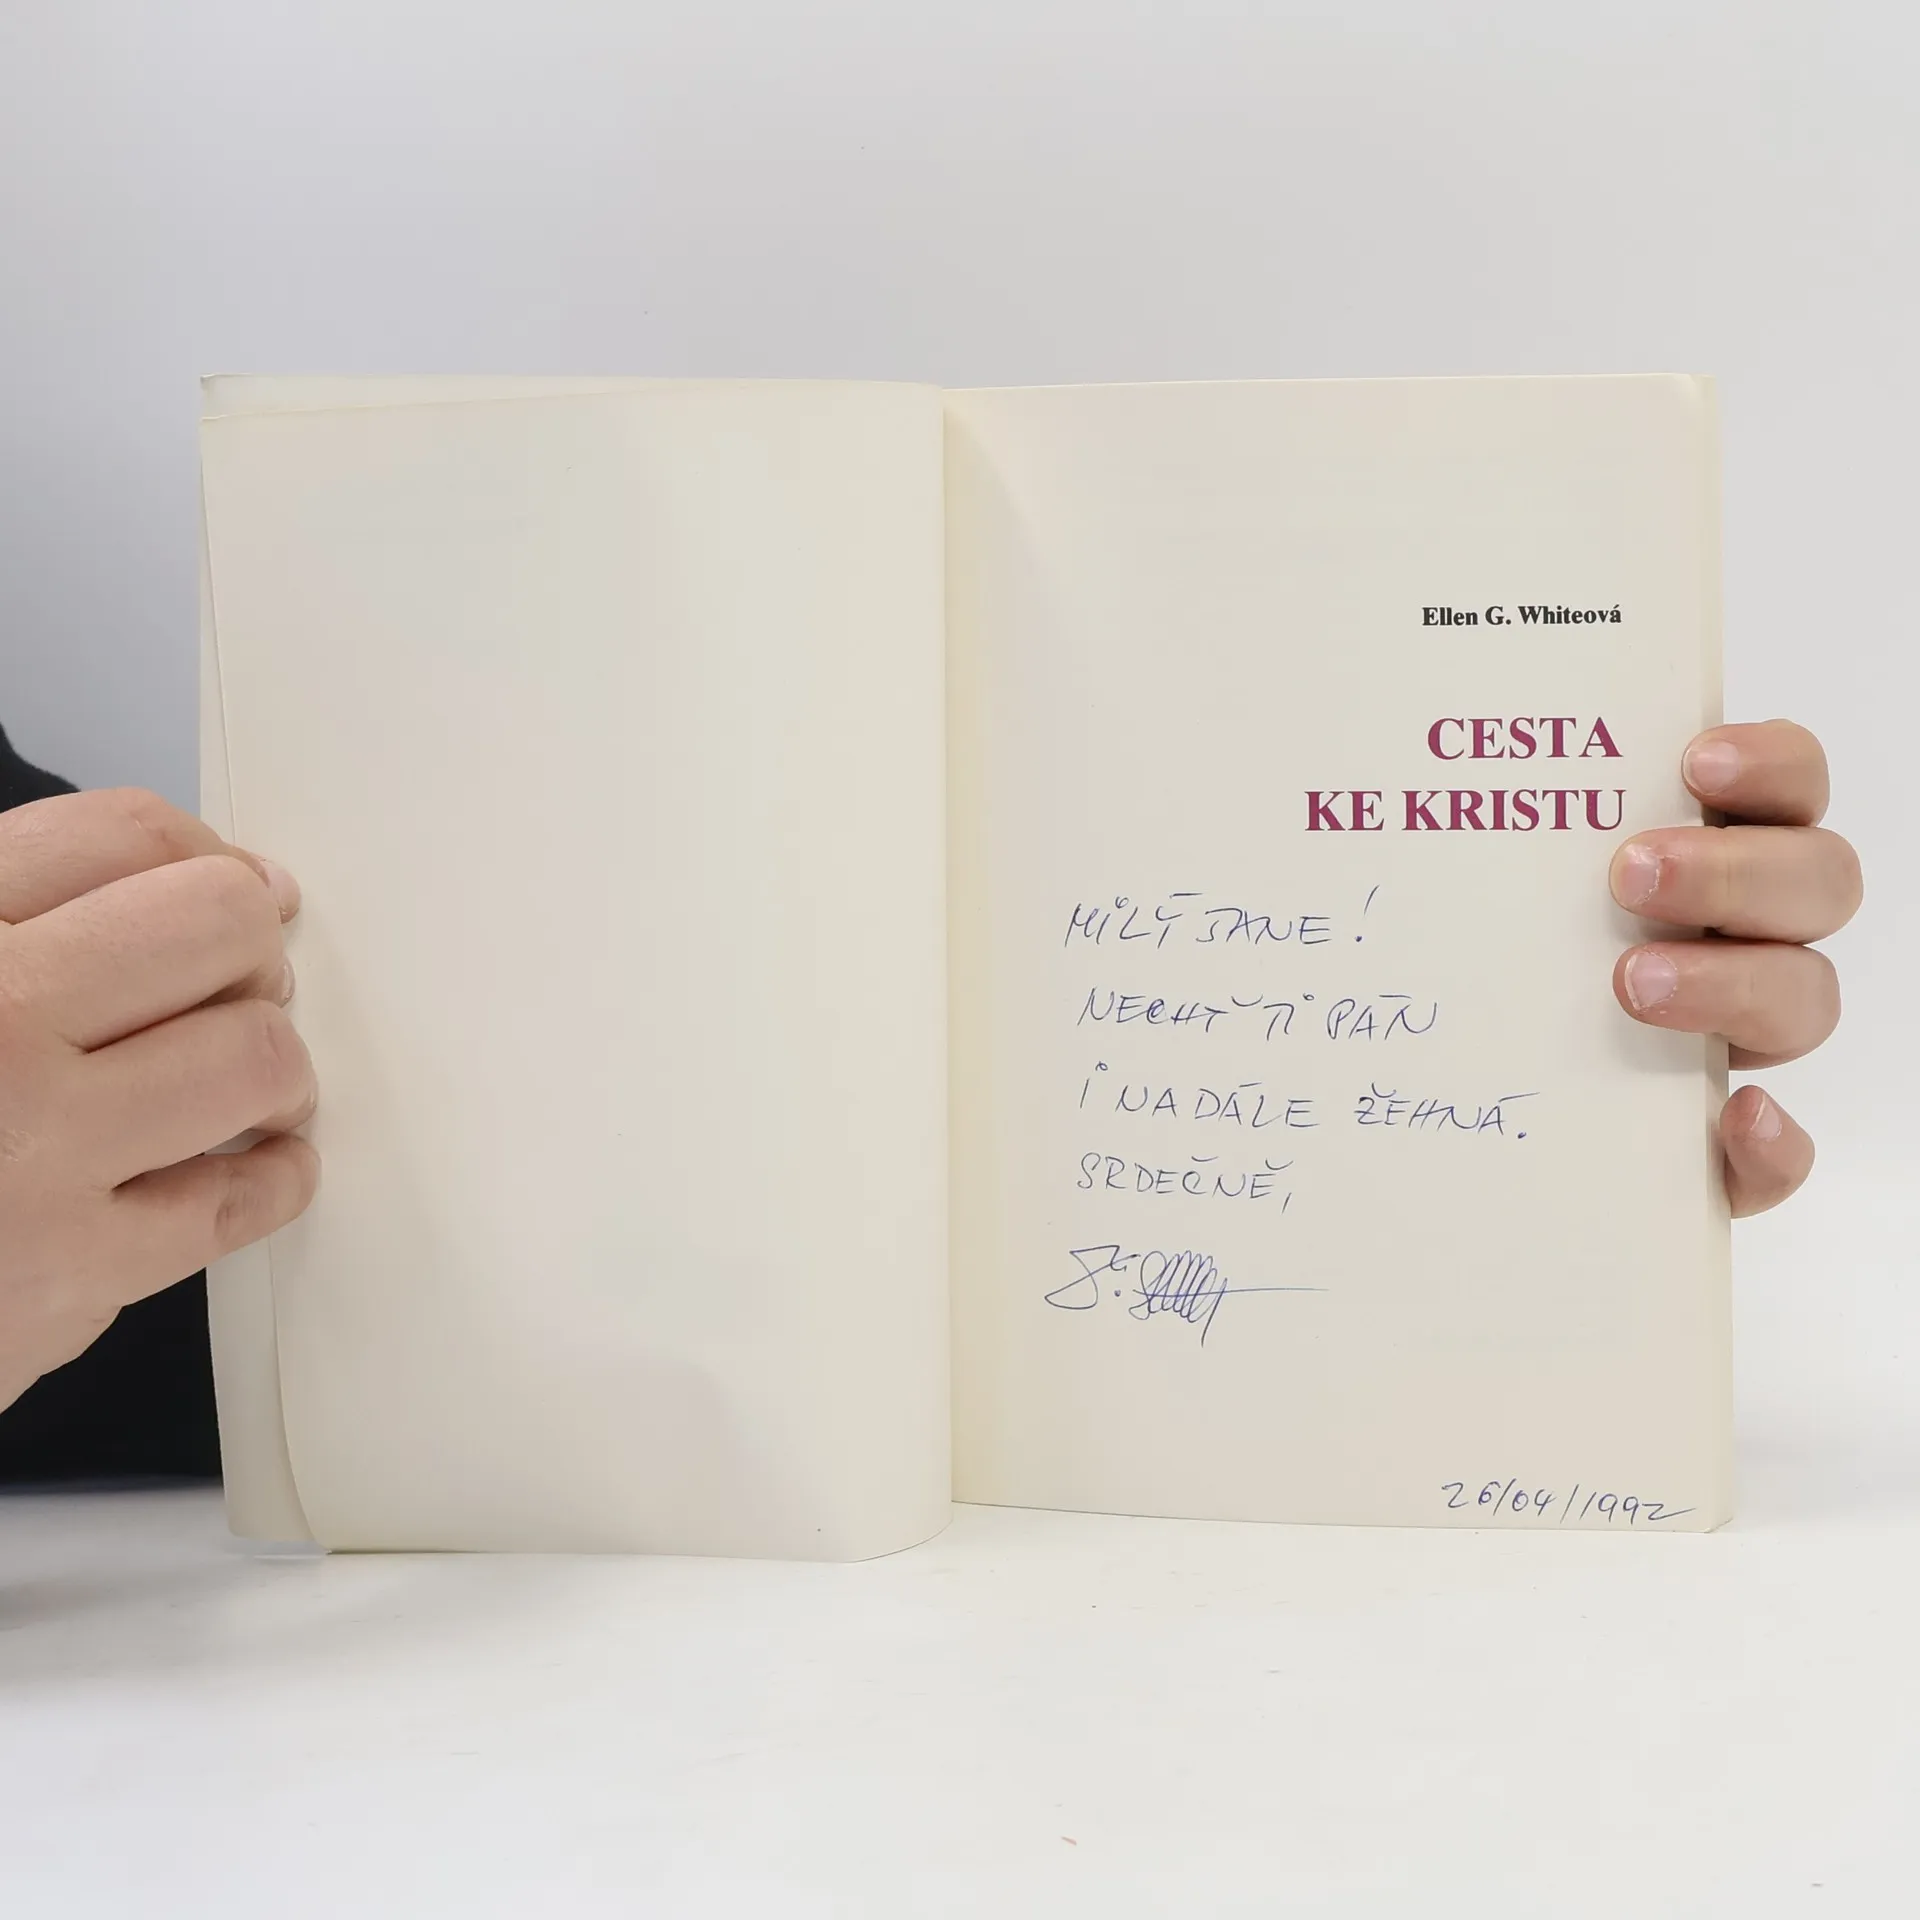 Ellen G. Whiteová
CESTA
KE KRISTU
MILÝ JANE!
NECHŤ TI PÁN
I NADÁLE ŽEHNÁ.
SRDEČNĚ,
26/04/1992